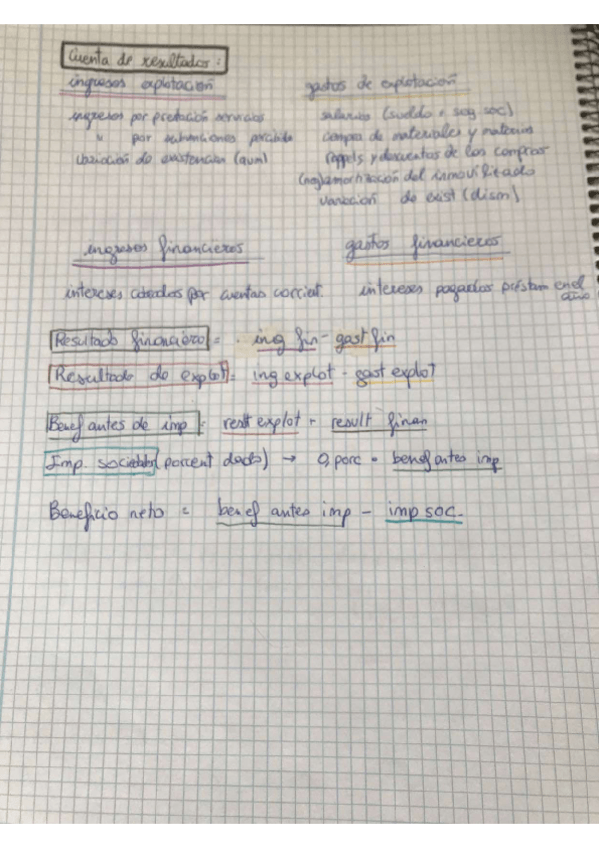 Cuenta de resultados:
ingresos explotación
gastos de explotación
ingresos por prestación servicios
" por subvenciones percibida
variación de existencias (aum)
salarios (sueldo + seg soc)
compra de materiales y materias
rappels y descuentos de las compras
(neg)amortización del inmovilizado
variación de exist (dism)
ingresos financieros
gastos financieros
intereses cobrados por cuentas corrient.
intereses pagados préstam en el año
Resultado financiero = ing fin - gast fin
Resultado de explot = ing explot - gast explot
Benef antes de imp = rest explot + result finan
Imp. sociedades (porcent dado) → 0,porc * benef antes imp
Beneficio neto = benef antes imp - imp soc.